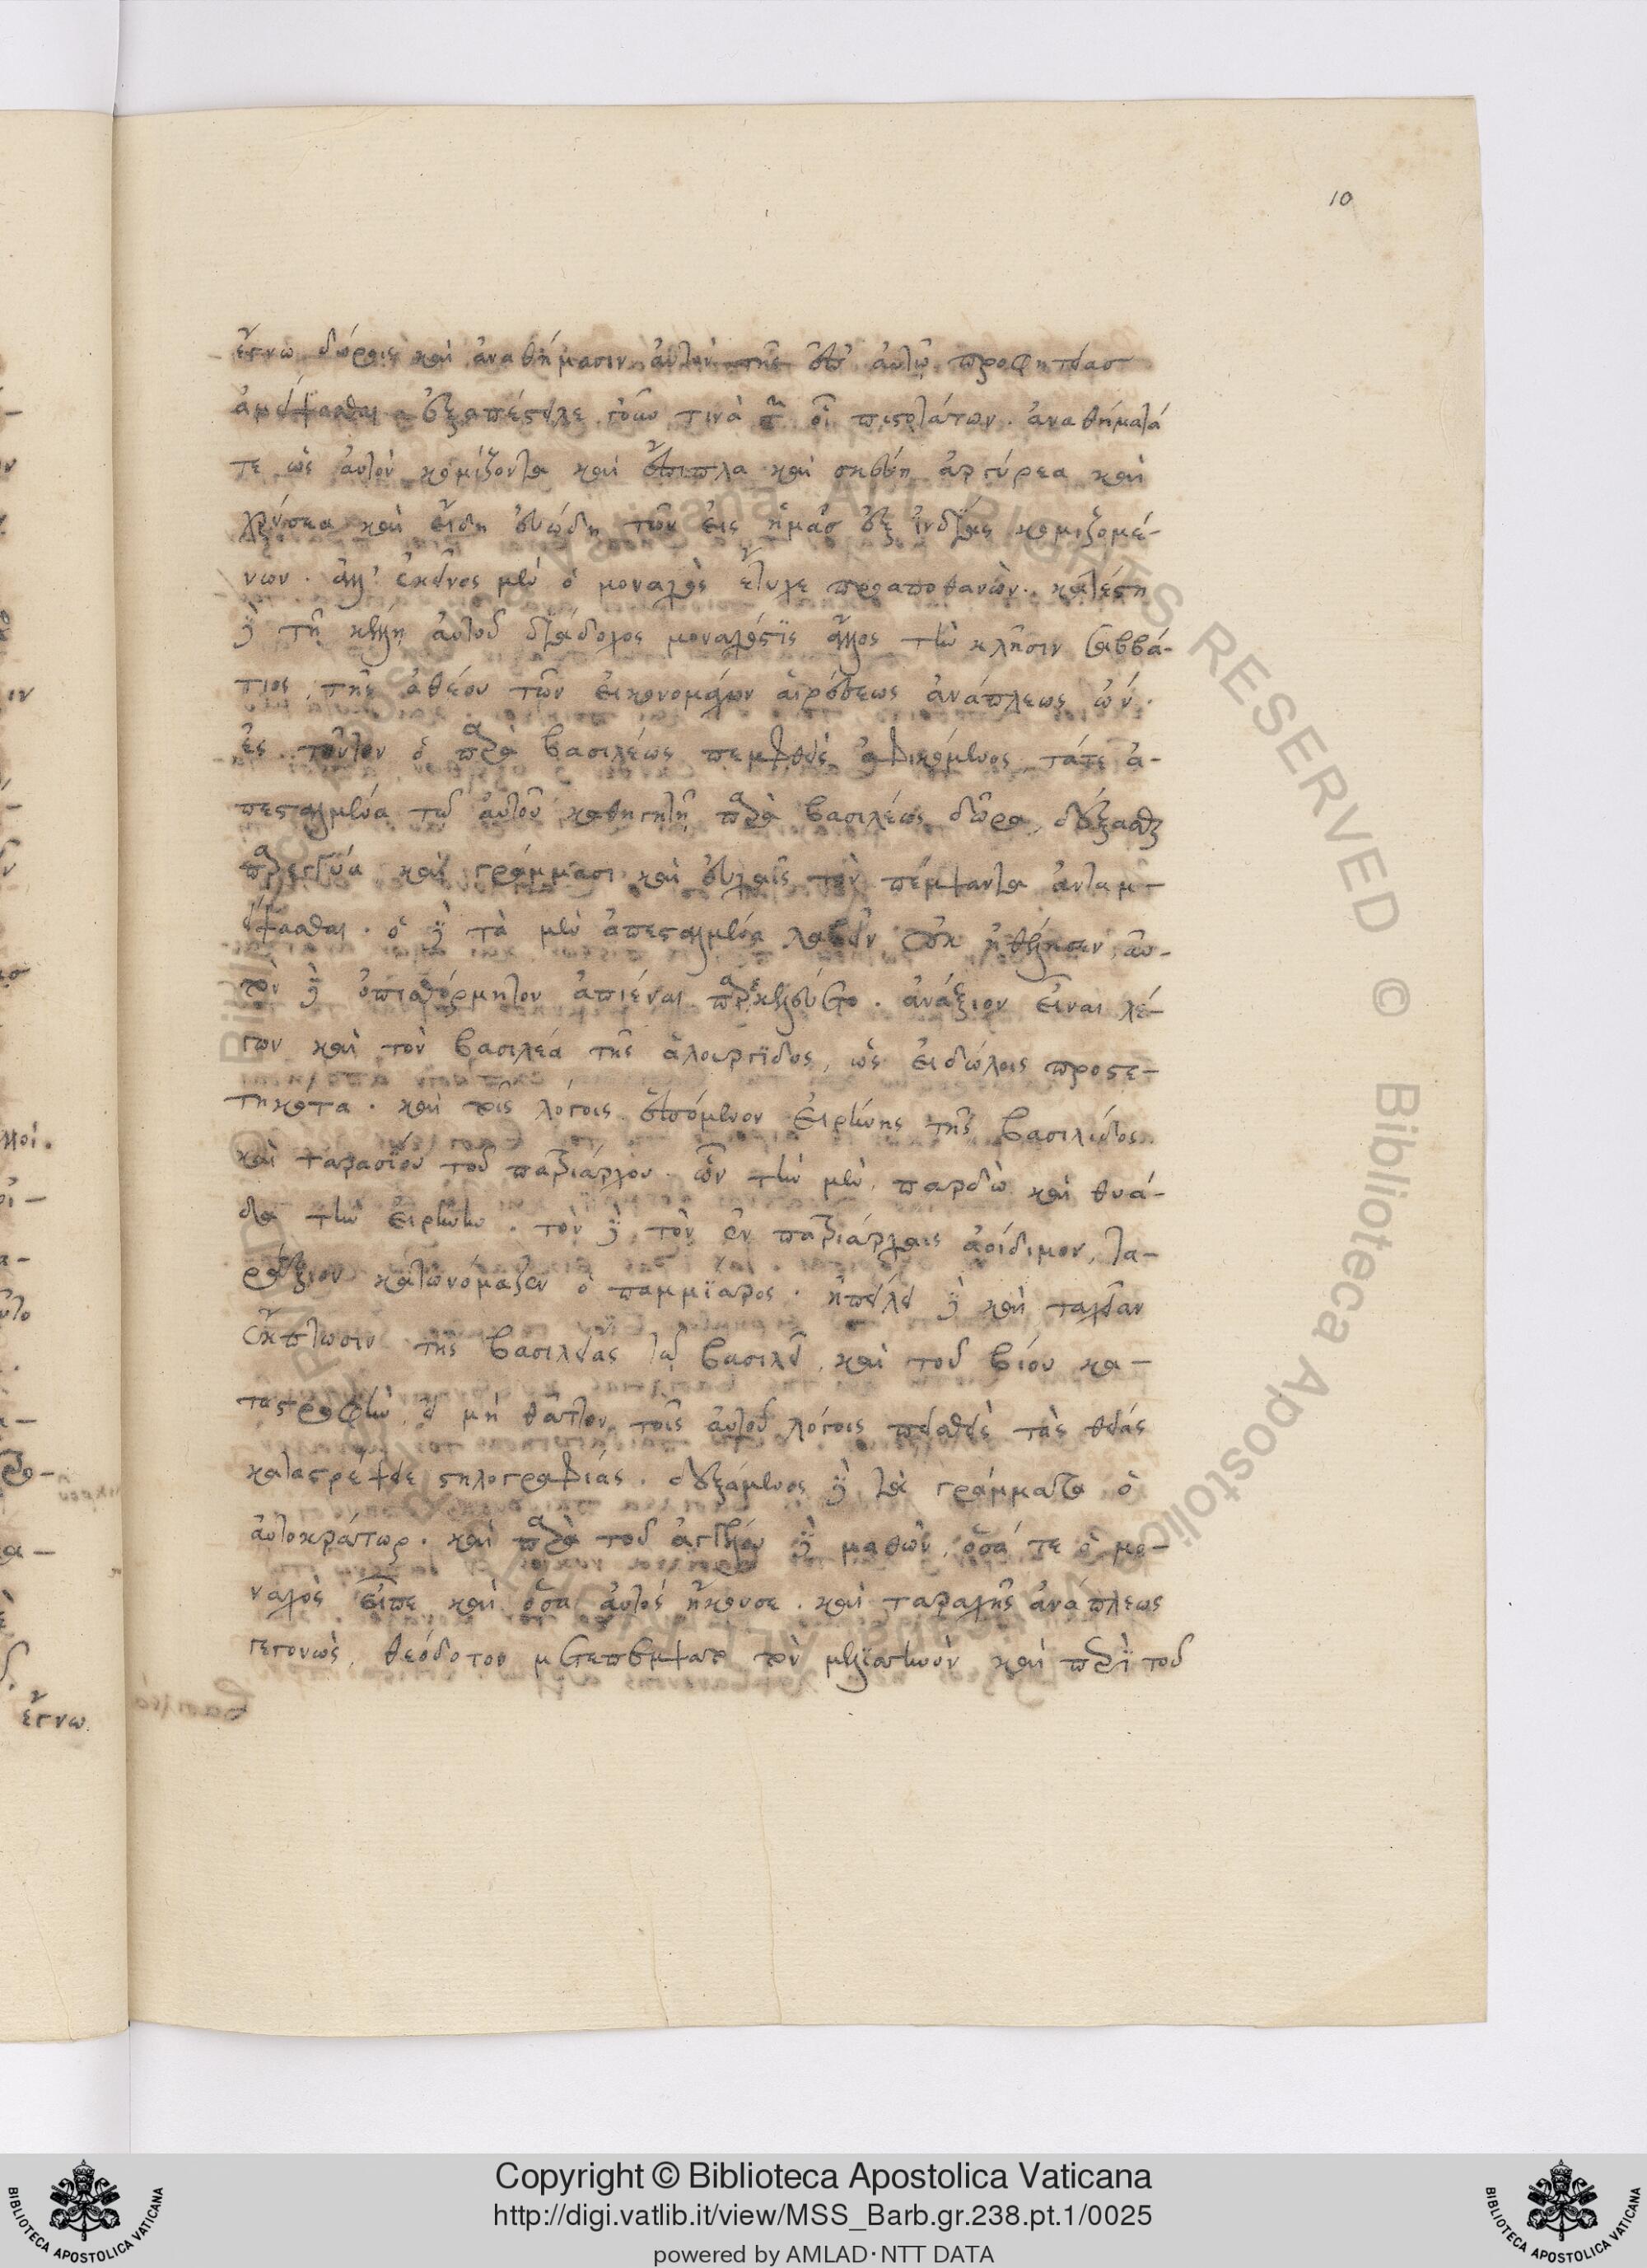 10
ἔγνω δώροις καὶ ἀναθήμασιν αὐτὸν τῆς ἐπ' αὐτῷ προφητείασ
ἀμείψασθαι. ἐξαπέστειλε γοῦν τινὰ τῶν οἱ πιστοτάτων. ἀναθήματά
τε ὡς αὐτὸν κομίζοντα καὶ ἔπιπλα καὶ σκεύη ἀργύρεα καὶ
χρύσεα καὶ εἴδη εὐώδη τῶν εἰς ἡμᾶσ ἐξ ἰνδίας κομιζομέ-
νων. ἀλλ' ἐκεῖνος μὲν ὁ μοναχὸς ἔτυχε προαποθανών. κατέστη
δὲ τῇ κέλλῃ αὐτοῦ διάδοχος μοναχός τις ἄλλος τὴν κλῆσιν Σαββά-
τιος, τῆς ἀθέου τῶν εἰκονομάχων αἱρέσεως ἀνάπλεως ὤν.
ἐς τοῦτον ὁ παρὰ βασιλέως πεμφθεὶς ἀφικόμενος, τά τε ἀ-
πεσταλμένα τῷ αὐτοῦ καθηγητῇ παρὰ βασιλέως δῶρα, δέξασθαι
παρηγγύα καὶ γράμμασι καὶ εὐχαῖς τὸν πέμψαντα ἀνταμ-
είψασθαι. ὁ δὲ τὰ μὲν ἀπεσταλμένα λαβεῖν οὐκ ἠθέλησεν, αὐ-
τὸν δὲ ὀπισθόρμητον ἀπιέναι παρεκελεύετο. ἀνάξιον εἶναι λέ-
γων καὶ τὸν βασιλέα τῆς ἁλουργίδος, ὡς εἰδώλοις προσε-
τηκότα. καὶ τοῖς λόγοις ἑπόμενον Εἰρήνης τῆς βασιλίδος
καὶ ταρασίου τοῦ πατριάρχου. ὧν τὴν μὲν, παρδὼ καὶ θυά-
δα τὴν εἰρήνην. τὸν δὲ, τὸν ἐν πατριάρχαις ἀοίδιμον, τα-
ράξιον κατωνόμαζεν ὁ παμμίαρος. ἠπείλει δὲ καὶ ταχεῖαν
ἔκπτωσιν τῆς βασιλείας τῷ βασιλεῖ, καὶ τοῦ βίου κα-
ταστροφὴν, εἰ μὴ θᾶττον τοῖς αὐτοῦ λόγοις πεισθεὶς τὰς θείας
καταστρέψειε στηλογραφίας. δεξάμενος δὲ τὰ γράμματα ὁ
αὐτοκράτωρ. καὶ παρὰ τοῦ ἀγγέλου δὲ μαθὼν, ὅσά τε ὁ μο-
ναχὸς εἶπε καὶ ὅσα αὐτὸς ἤκουσε. καὶ ταραχῆς ἀνάπλεως
γεγονὼς, θεόδοτον μετεπέμψατο τὸν μελισσηνὸν καὶ περὶ τοῦ
ἔγνω